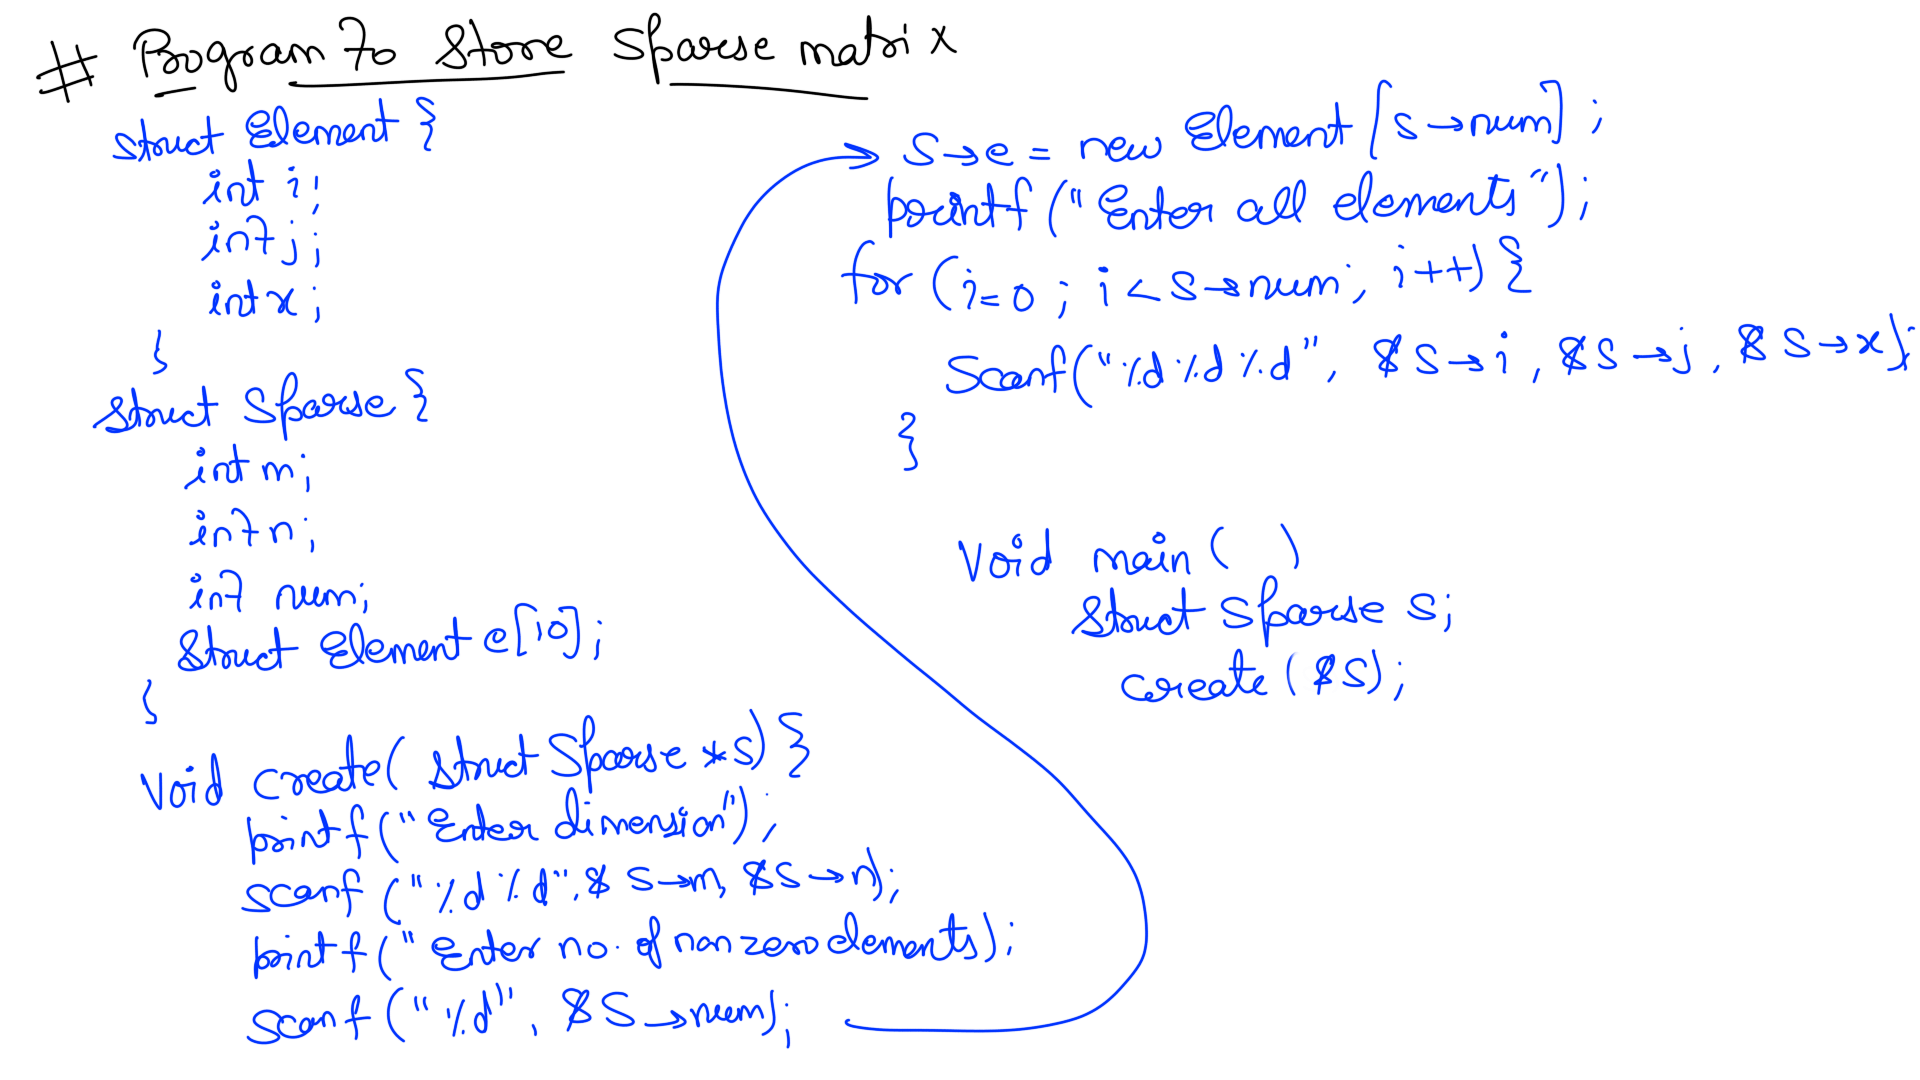 # Program To Store Sparse matrix
struct Element {
int i;
int j;
int x;
}
struct Sparse {
int m;
int n;
int num;
struct Element e[10];
}
void create( struct Sparse *s) }
printf("Enter dimension");
scanf ("%d %d", & s→m, &s→n);
printf("Enter no. of non zero elements);
scanf ("%d", &s→num);
s→e = new Element [s→num];
printf ("Enter all elements");
for (i=0; i<s→num; i++) {
Scanf("%d %d %d", & s→i, &s→j, & s→x);
}
Void main( )
struct Sparse s;
create (&s);